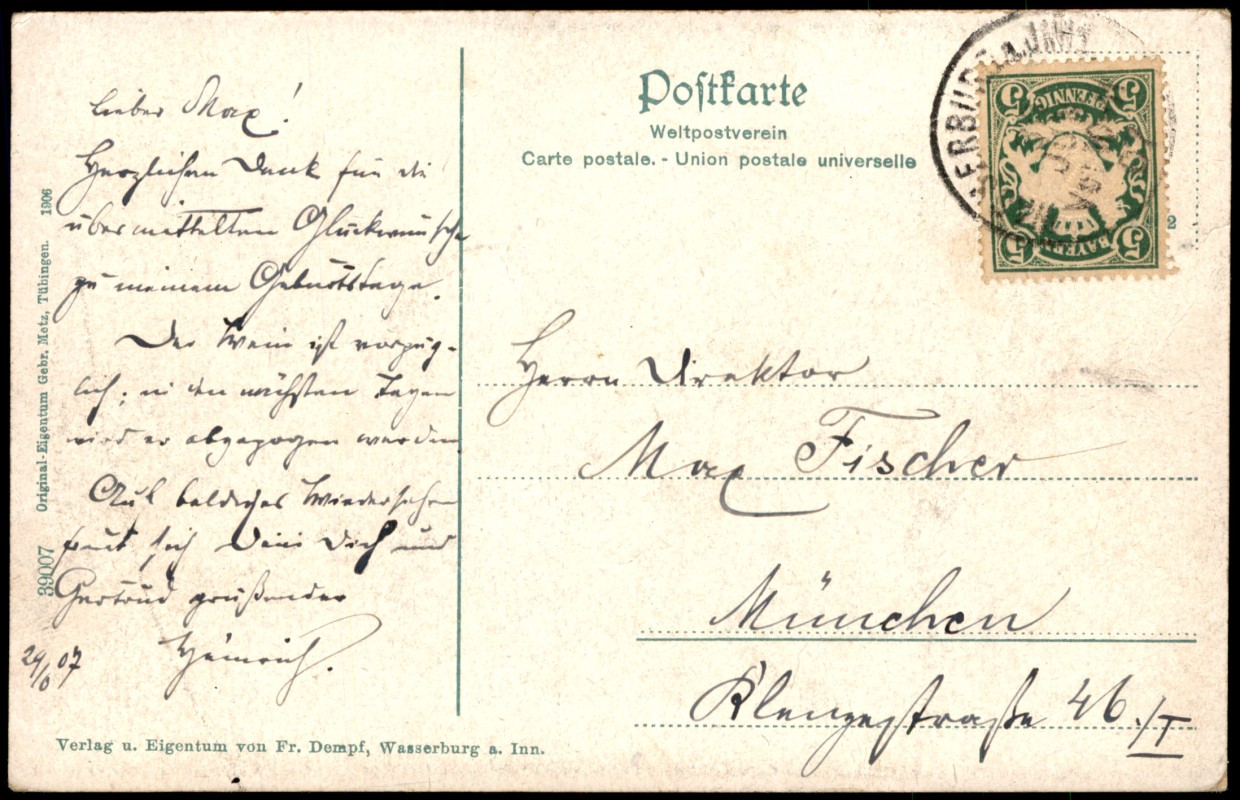 Lieber Max!
Herzlichen Dank für die
übermittelten Glückwünsche
zu meinem Geburtstage.
Der Wein ist vorzüg-
lich; in den nächsten Tagen
wird er abgezogen werden
Auf baldiges Wiedersehen
freut sich Dein Dich und
Gertrud grüßender
Heinrich.
24/6 07
39007 Original-Eigentum Gebr. Metz, Tübingen. 1906
Verlag u. Eigentum von Fr. Dempf, Wasserburg a. Inn.
Postkarte
Weltpostverein
Carte postale. - Union postale universelle
5 PFENNIG 5
5 BAYERN 5
2
Herrn Direktor
Max Fischer
München
Klenzestraße 46./I